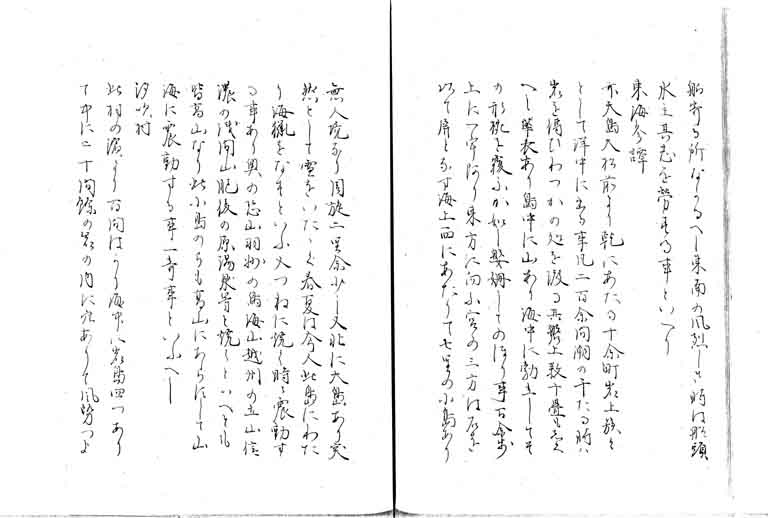 船寄る所なかるへし東南の風烈しき時は船頭
水主其志を労する事といへり
東海参譚
弁天島大松前より乾にあたる十余町岩上嶮々
として洋中に出る事凡二百余間潮の干たる時ハ
岩を伝ひわつかの処を渡る其岩上数十畳も
へし華表あり島中に山あり海中に独立してそ
の形硯を覆ふか如し磐姍してのほり事百余歩
上に一宇あり東方に向ふ宮の三方は
以て屏とす海上西にあたりて七里の小島あり
無人境なり周旋二里余少し又北に大島あり突
然として雪をいたゝく春夏は今人此島にわた
り海猟をなすといふ火つねに焼く時々震動す
る事あり奥の恐山羽州の鳥海山越州の立山信
濃の浅間山肥後の原温泉等も焼くといへとも
皆高山なり此小島のらも高山にあらすして山
海に震動する事一奇事といふへし
汐吹村
此村の浜より百間はかり海中に岩島四つあり
て中に二十間餘の岩の内に穴ありて風勢つよ